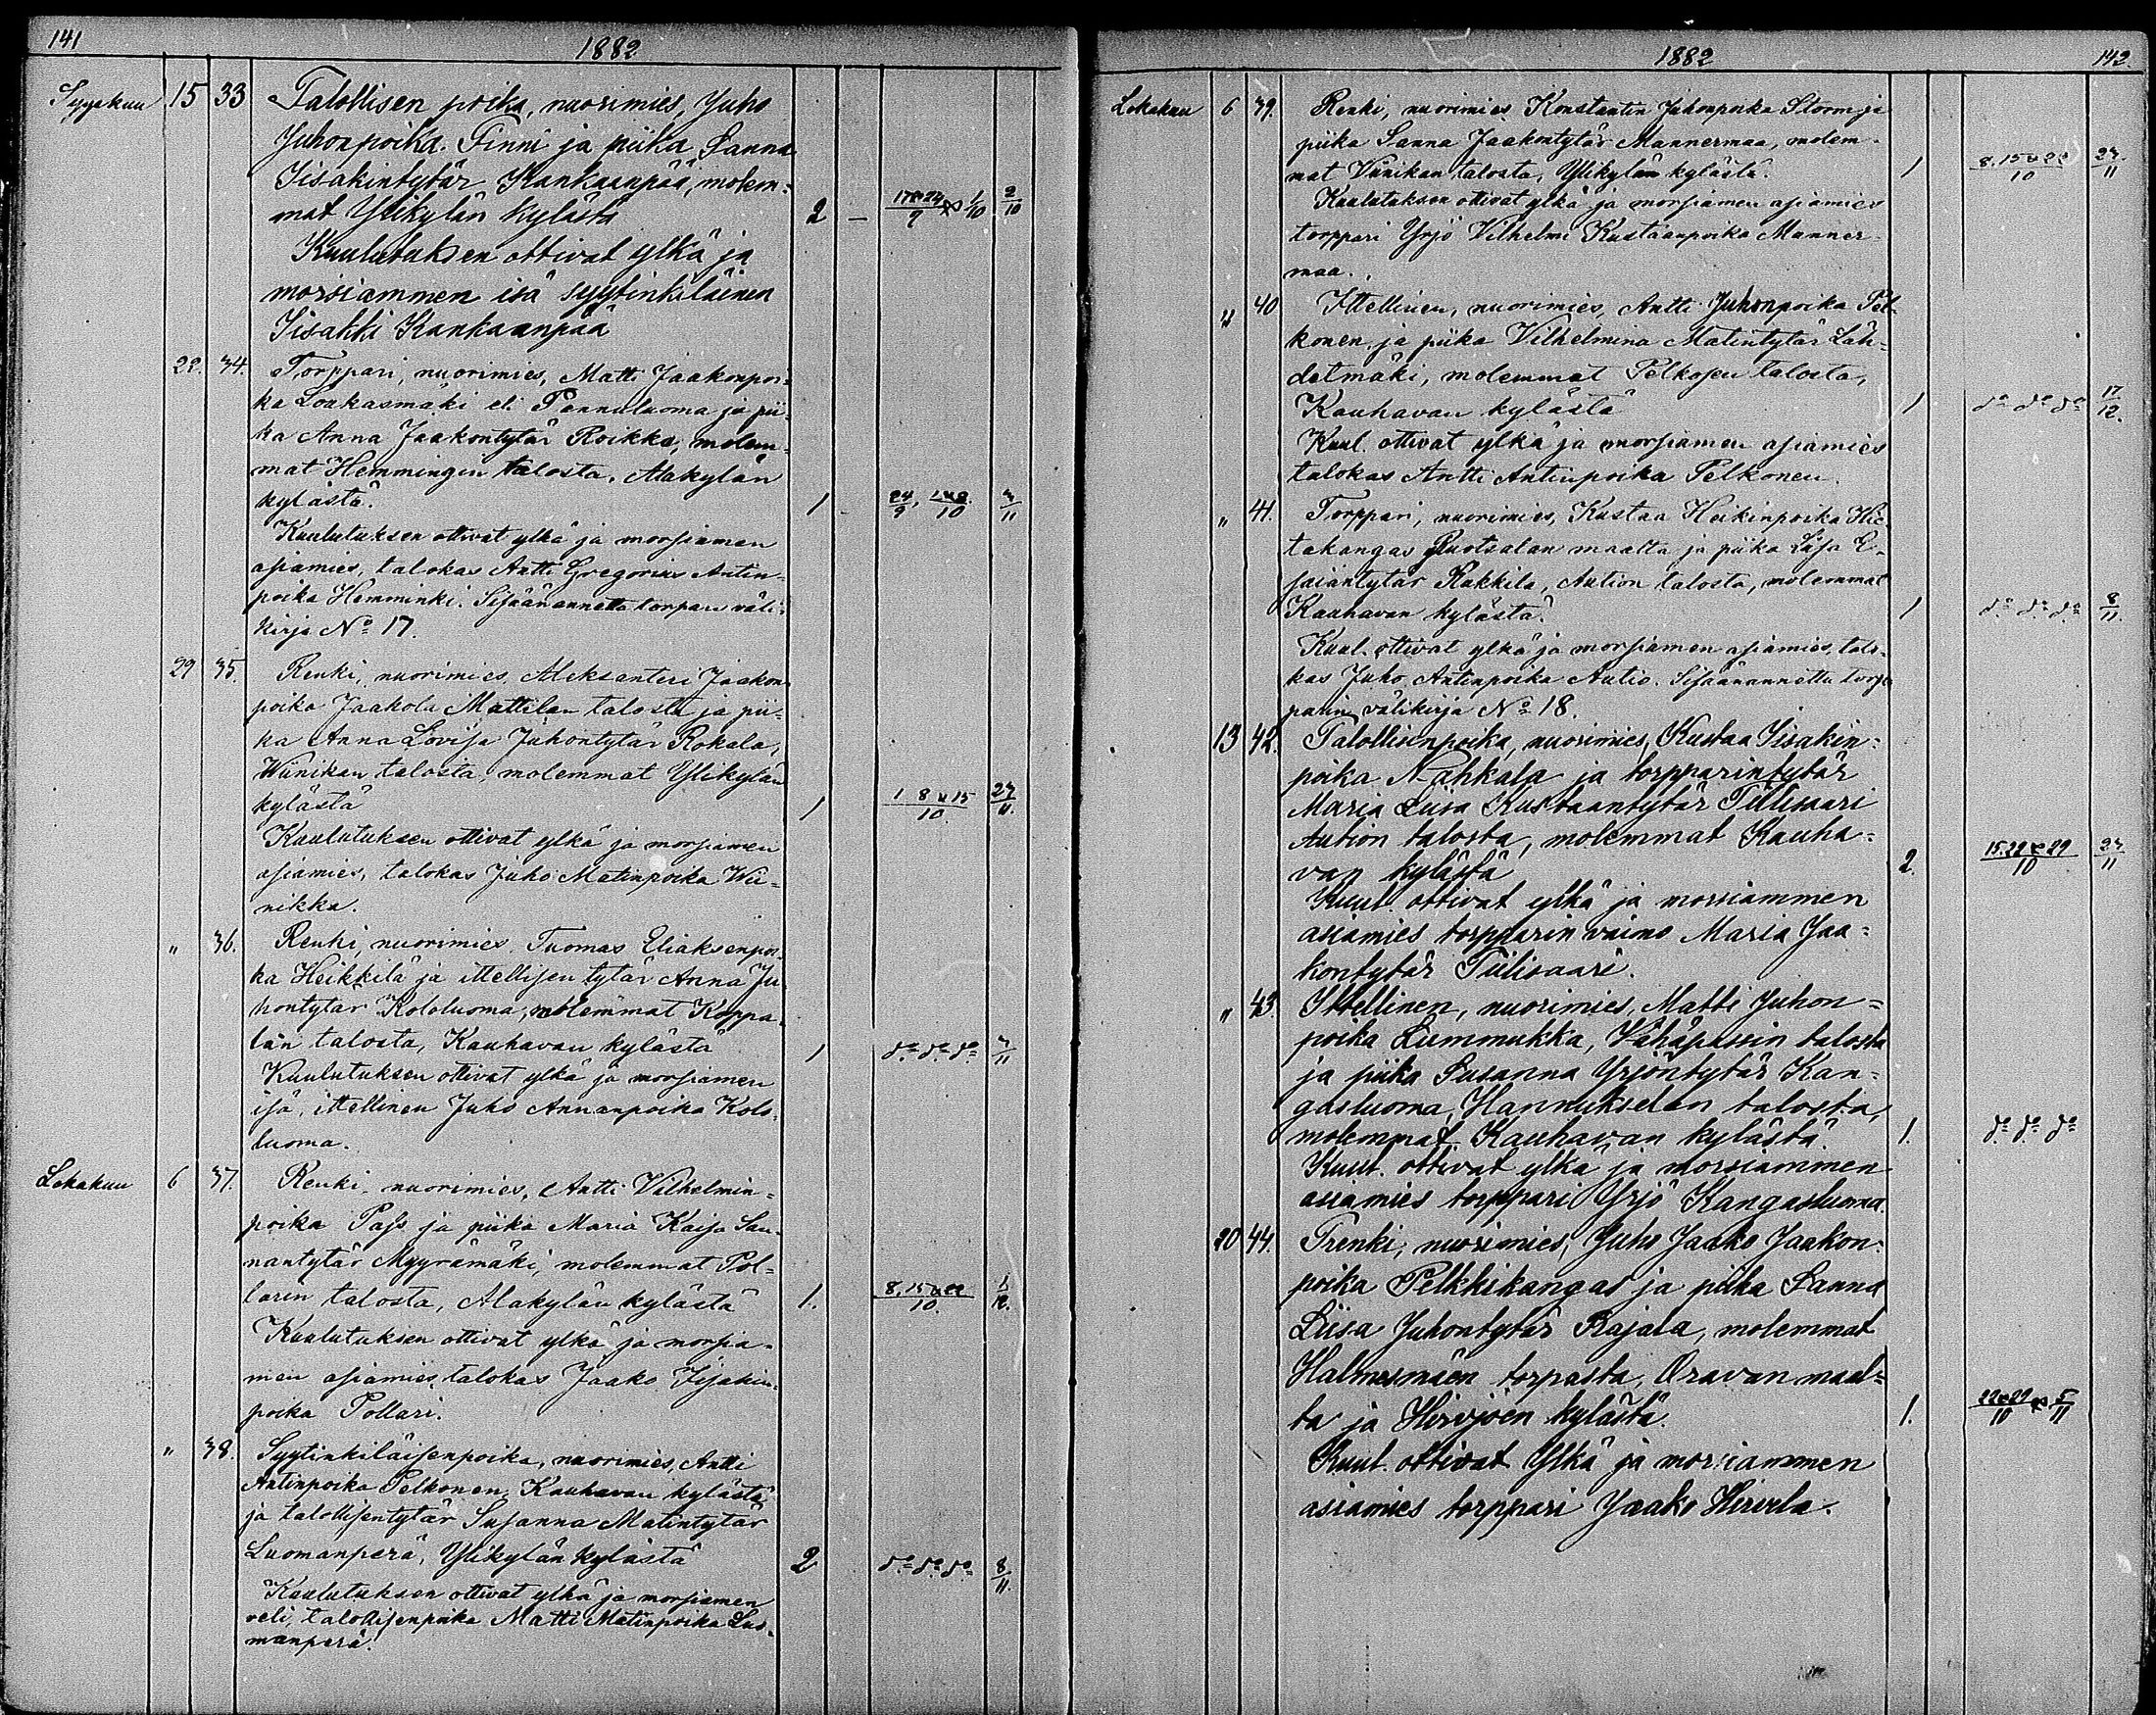 141
1882
Syyskuu 15 33 Talollisen poika, nuorimies, Juho
Juhonpoika Finni ja piika Sanna
Iisakintytär Kankaanpää, molem-
mat Ylikylän kylästä 2 — 17 & 24/9 & 1/10 2/10
Kuulutuksen ottivat ylkä ja
morsiammen isä syytinkiläinen
Iisakki Kankaanpää
22. 34. Torppari, nuorimies, Matti Jaakonpoi-
ka Loukasmäki eli Pannuluoma ja pii-
ka Anna Jaakontytär Roikka, molem-
mat Hemmingin talosta, Alakylän
kylästä. 1 24/9, 1 & 8/10
Kuulutuksen ottivat ylkä ja morsiamen
asiamies, talokas Antti Gregorius Antin-
poika Hemminki. Sisäänannettu torpan väli-
kirja No 17.
29 35. Renki, nuorimies, Aleksanteri Jaakon-
poika Jaakola Mattilan talosta ja pii-
ka Anna Lovisa Juhontytär Rokala,
Wiinikan talosta, molemmat Ylikylän
kylästä 1 1 8 & 15/10 27/11.
Kuulutuksen ottivat ylkä ja morsiamen
asiamies, talokas Juho Matinpoika Wii-
nikka.
" 36. Renki, nuorimies, Tuomas Eliaksenpoi-
ka Heikkilä ja ittellisen tytär Anna Ju-
hontytär Kololuoma, molemmat Koppa-
lan talosta, Kauhavan kylästä 1 do do do
Kuulutuksen ottivat ylkä ja morsiamen
isä, ittellinen Juho Annanpoika Kolo-
luoma.
Lokakuu 6 37. Renki, nuorimies, Antti Vilhelmin-
poika Pass ja piika Maria Kaisa San-
nantytär Myyrämäki, molemmat Pol-
larin talosta, Alakylän kylästä 1. 8, 15 & 22/10. 1/12.
Kuulutuksen ottivat ylkä ja morsia-
men asiamies, talokas Jaako Iisakin-
poika Pollari.
" 38. Syytinkiläisenpoika, nuorimies, Antti
Antinpoika Pelkonen, Kauhavan kylästä
ja talollisentytär Susanna Matintytär
Luomanperä, Ylikylän kylästä 2 do do do 8/11.
Kuulutuksen ottivat ylkä ja morsiamen
veli, talollisenpoika Matti Matinpoika Luo-
manperä.
1882
142.
Lokakuu 6 39. Renki, nuorimies Konstantin Juhonpoika Storm ja
piika Sanna Jaakontytär Mannermaa, molem-
mat Wiinikan talosta, Ylikylän kylästä. 1 8, 15 & 22/10 27/11
Kuulutuksen ottivat ylkä ja morsiamen asiamies
torppari Yrjö Vilhelmi Kustaanpoika Manner-
maa.
" 40 Ittellinen, nuorimies, Antti Juhonpoika Pel-
konen ja piika Vilhelmina Matintytär Läh-
detmäki, molemmat Pelkosen talosta,
Kauhavan kylästä 1 do do do 17/12.
Kuul. ottivat ylkä ja morsiamen asiamies
talokas Antti Antinpoika Pelkonen.
" 41. Torppari, nuorimies, Kustaa Heikinpoika Hie-
takangas Ruotsalan maalta ja piika Liisa E-
saiantytär Rakkila, Aution talosta, molemmat
Kauhavan kylästä. 1 do do do 8/11.
Kuul. ottivat ylkä ja morsiamen asiamies, talo-
kas Juho Antinpoika Autio. Sisäänannettu torp-
parin välikirja No 18.
13 42. Talollisenpoika, nuorimies, Kustaa Iisakin-
poika Nahkala ja torpparintytär
Maria Liisa Kustaantytär Tiilisaari
Aution talosta, molemmat Kauha-
van kylästä 2. 15. 22 & 29/10 27/11
Kuul. ottivat ylkä ja morsiammen
asiamies torpparin vaimo Maria Jaa-
kontytär Tiilisaari.
" 43. Ittellinen, nuorimies, Matti Juhon-
poika Lummukka, Vähäpassin talosta
ja piika Susanna Yrjöntytär Kan-
gasluoma, Hannukselan talosta,
molemmat Kauhavan kylästä. 1. do do do
Kuul. ottivat ylkä ja morsiammen
asiamies torppari Yrjö Kangasluoma.
20 44. Trenki, nuorimies, Juho Jaako Jaakon-
poika Pelkkikangas ja piika Sanna
Liisa Juhontytär Rajala, molemmat
Halmesmäen torpasta, Oravan maal-
ta ja Hirvijoen kylästä. 1. 22 & 29/10 & 5/11
Kuul. ottivat Ylkä ja morsiammen
asiamies torppari Jaako Hirvela.